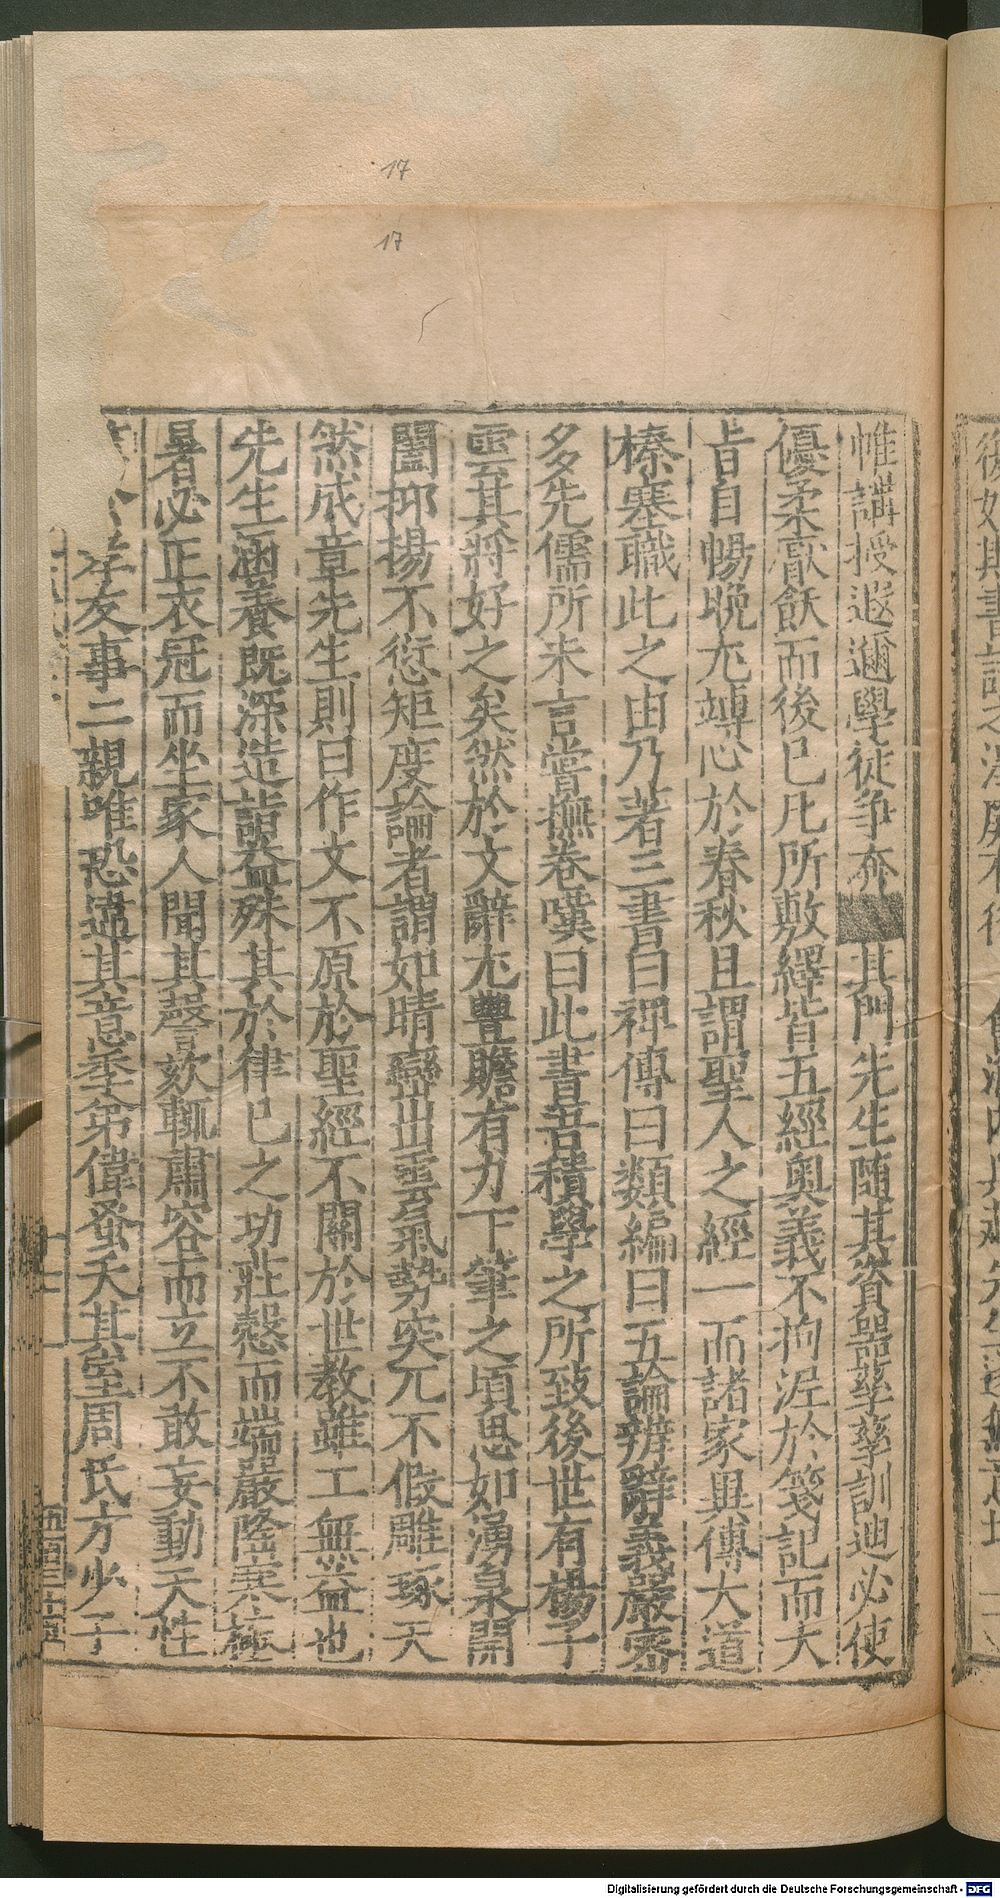 17
17
帷講授遐邇學徒争奔其門先生隨其資器孳孳訓迪必使
優柔厭飫而後已凡所敷繹皆五經奥義不拘泥於箋記而大
旨自暢晩尤竱心於春秋且謂聖人之經一而諸家異傳大道
榛塞職此之由乃著三書曰褌傳曰類編曰五論辨辭義嚴密
多先儒所未言嘗撫卷嘆曰此書吾積學之所致後世有楊子
雲其將好之矣然於文辭尤豐贍有力下筆之頃思如湧泉開
闔抑揚不愆矩度論者謂如晴巒出雲氣勢突兀不假雕琢天
然成章先生則曰作文不原於聖經不關於世教雖工無益也
先生涵養既深造詣益殊其於律已之功莊慤而端嚴隆寒極
暑必正衣冠而坐家人聞其謦欬輒肅容而立不敢妄動天性
孝友事二親唯恐違其意季弟偉蚤夭其室周氏方少子
十七
Digitalisierung gefördert durch die Deutsche Forschungsgemeinschaft - DFG